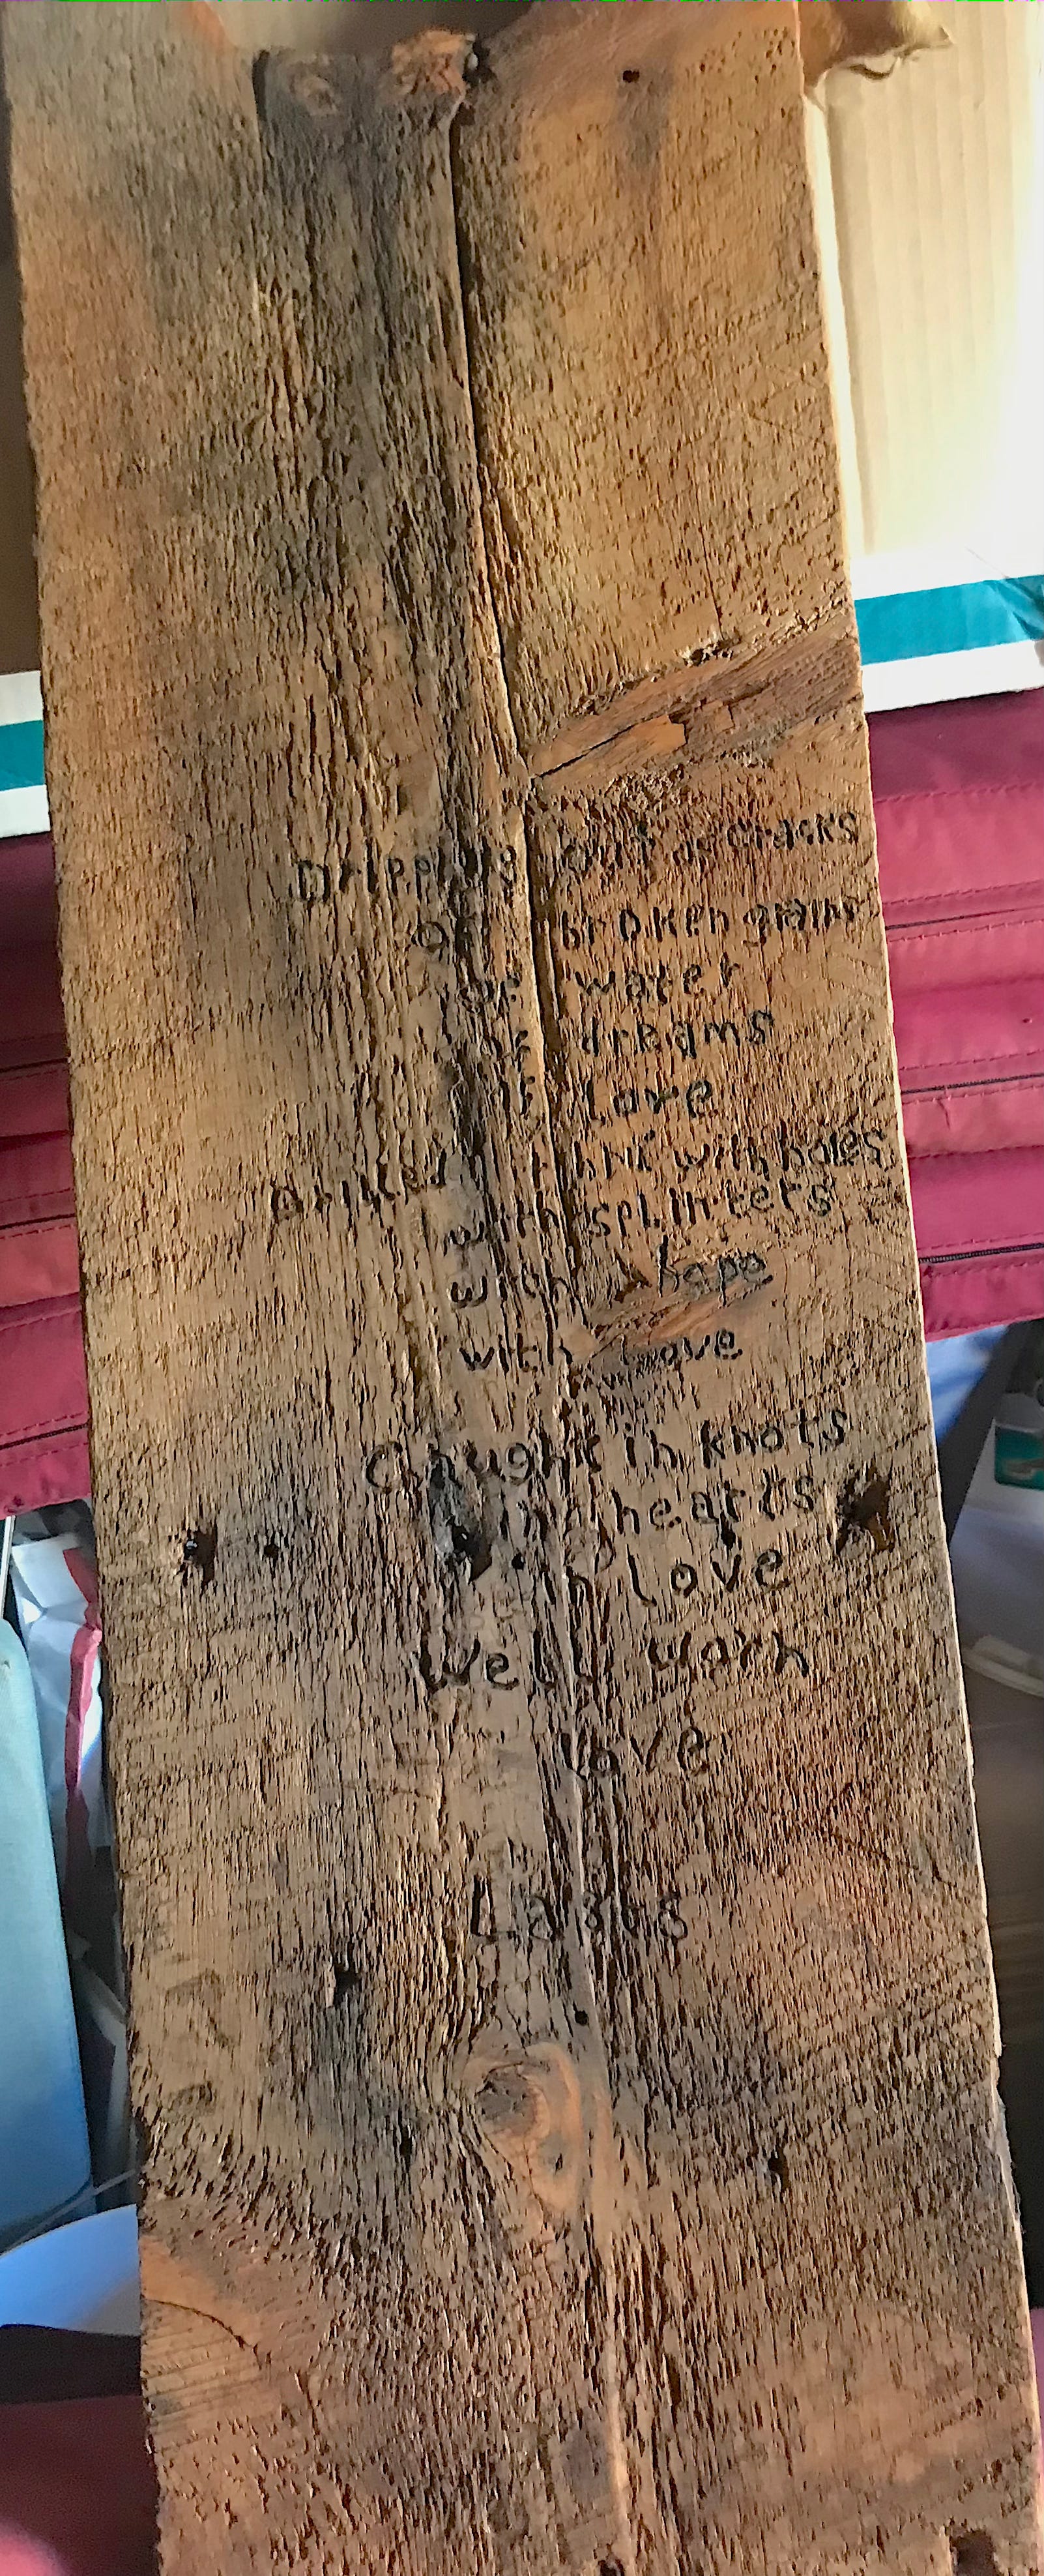 Dripping out as cracks
of broken grains
of water
of dreams
of love
Drilled with holes
with splinters
with hope
with love
Caught in knots
in hearts
in love
Well worn
love
Lasts